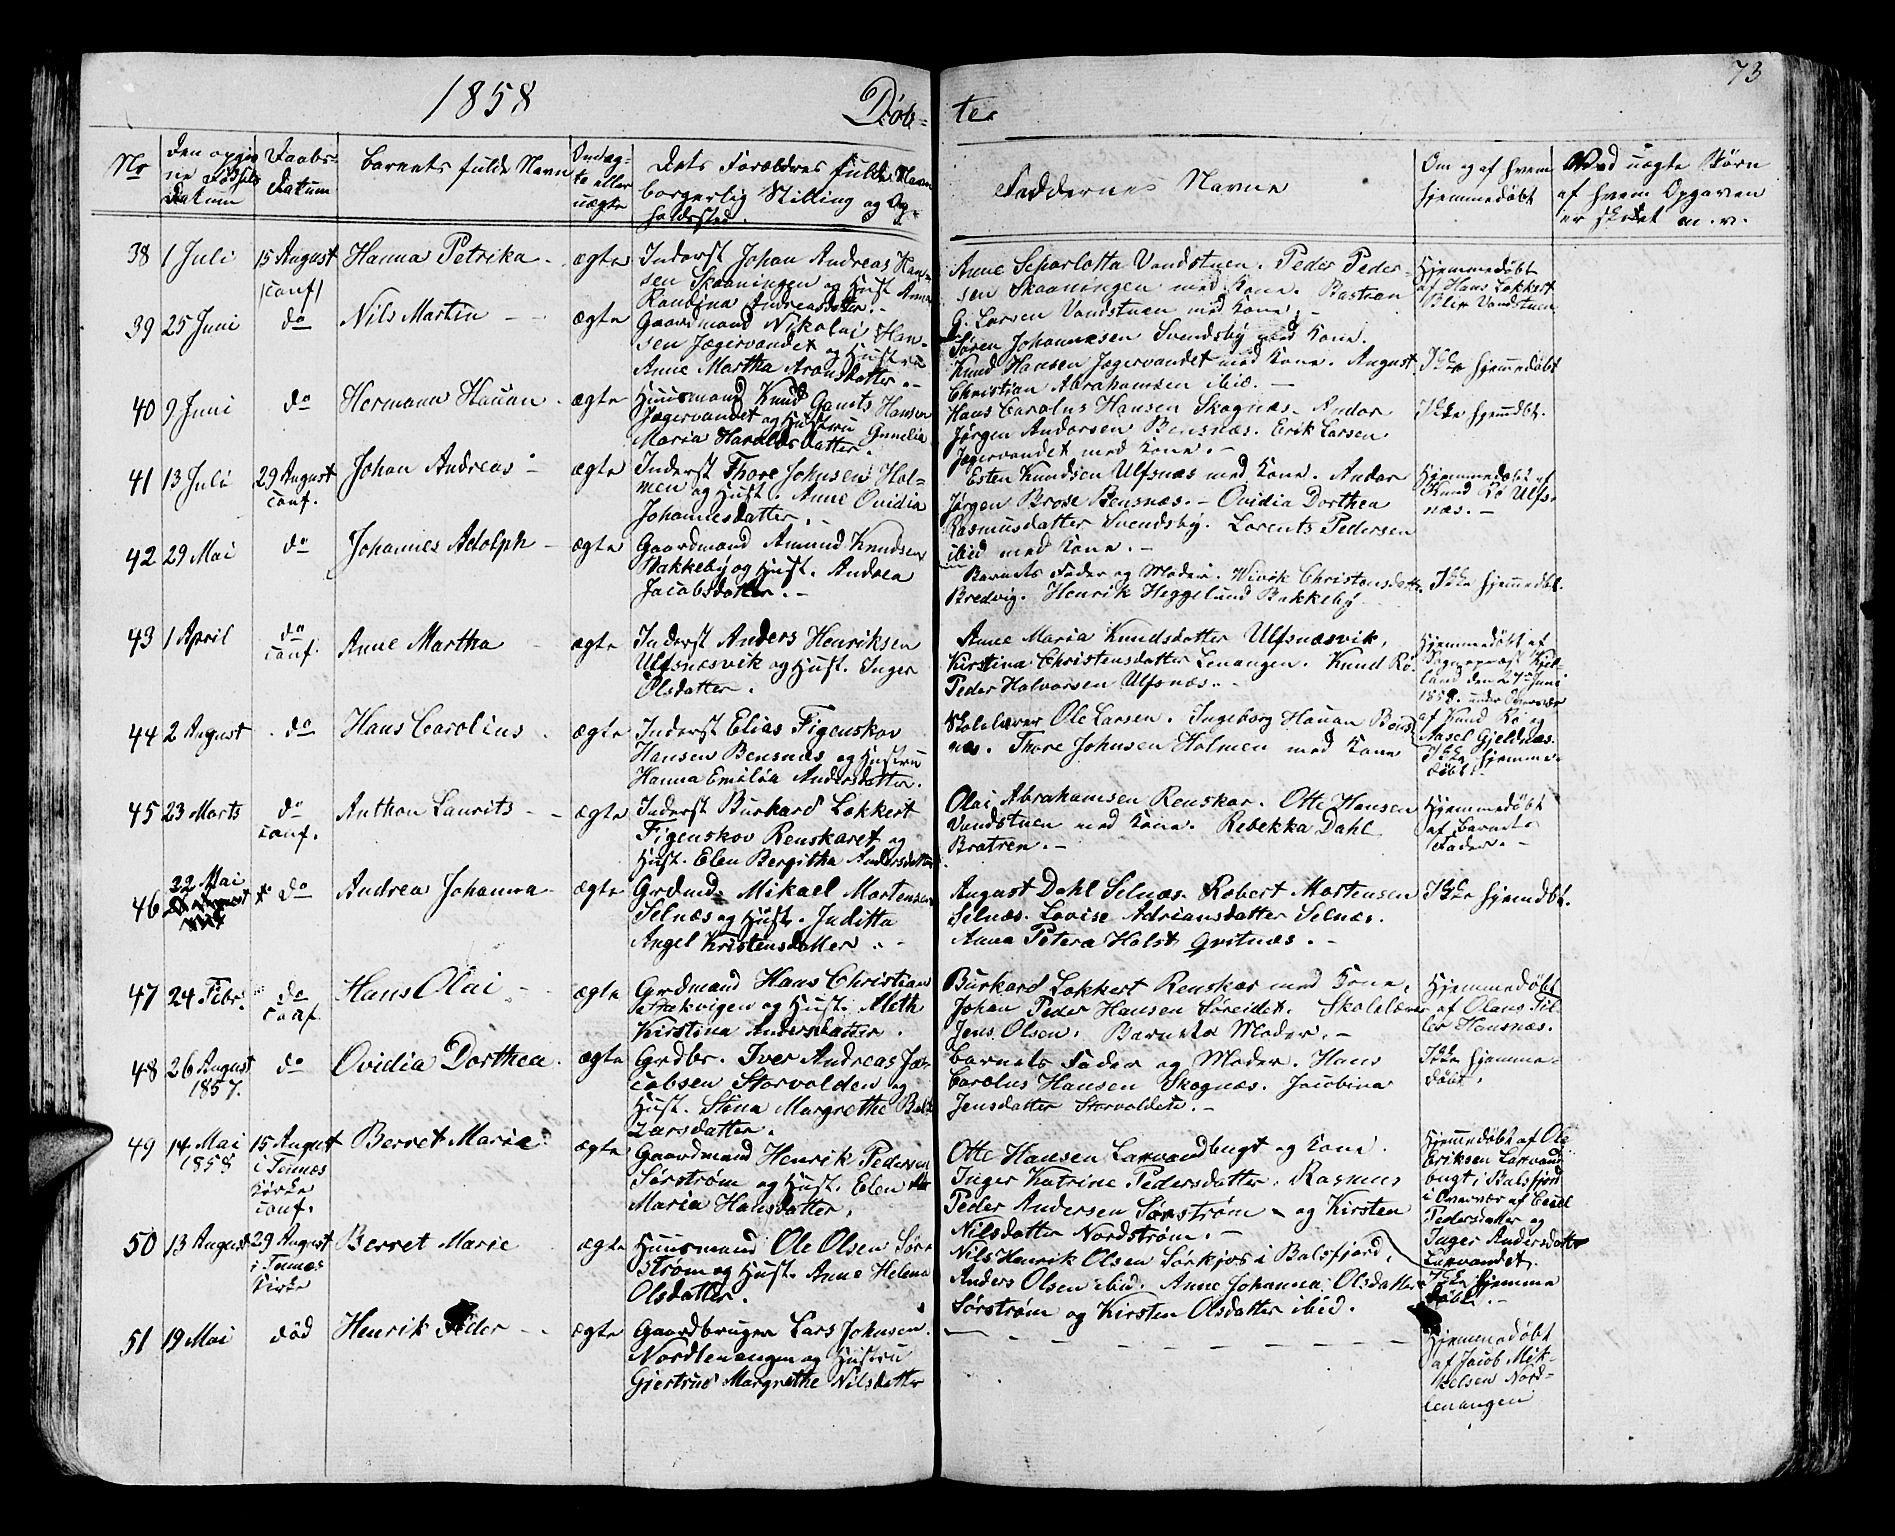 73
1858 Døb=
te.
No
Den opgiv
ne Fødsels
Datum
Daabs-
Datum
Barnets fulde Navn
Om æg-
te eller
uægte
Dets Forældres fulde Navn
borgerlig Stilling og Op-
holdssted.
Faddernes Navne
Om og af hvem
hjemmedøbt
Ved uægte Børn
af hvem Opgaven
er skeet m. v.
38 1 Juli 15 August Hanna Petrika - ægte Inderst Johan Andreas Han-
(conf) sen Skaaningen og Hust. Anne
Randina Andreasdatter. -
Anne Scharlotta Vandstuen. Peder Peder-
sen Skaaningen med Kone. Bastian
G. Larsen Vandstuen med Kone. -
Hjemmedøbt
af Hans Lokkert
Blix Vandstuen
39 25 Juni do Nils Martin - - ægte Gaardmand Nikolai Han-
sen Jægervandet og Hustru
Anne Martha Aronsdatter. -
Søren Johannesen Svendsby med Kone.
Knud Hansen Jægervandet med Kone. August
Christian Abrahamsen ibid. -
Ikke hjemmedøbt
40 9 Juni do Hermann Hauan - ægte Huusmand Knud Gamst Hansen
Jægervandet og Hustru Gunelia
Maria Haraldsdatter.
Hans Carolus Hansen Skognæs. Andor
Jørgen Andersen Bensnæs. Erik Larsen
Jægervandet med Kone. -
Ikke hjemdbt.
41 13 Juli 29 August Johan Andreas - ægte Inderst Thore Johnsen Hol-
conf. men og Hust. Anne Ovidia
Johannesdatter. -
Esten Knudsen Ulfsnæs med Kone. Andor
Jørgen Brose Bensnæs. - Ovidia Dorthea
Rasmusdatter Svendsby. Lorents Pedersen
ibid med Kone. -
Hjemmedøbt af
Knud Rø Ulfs-
næs. -
42 29 Mai do Johannes Adolph - ægte Gaardmand Amund Knudsen
Bakkeby og Hust. Andrea
Jacobsdatter. -
Barnets Fader og Moder. Wivik Christensdatter
Bredvig. Henrik Heggelund Bakkeby
Ikke hjemmedbt.
43 1 April do Anne Martha - ægte Inderst Anders Henriksen
conf. Ulfsnæsvik og Hust. Inger
Olsdatter.
Anne Maria Knudsdatter Ulfsnæsvik.
Kirstina Christensdatter Lenangen. Knud Rø.
Peder Halvorsen Ulfsnæs. -
Hjemmedøbt af
Sognepræst Kjel-
land den 27de Juni
1858 under Overvær
af Knud Rø og
Aasel Gjeldnæs.
44 2 August do Hans Carolius - ægte Inderst Elias Figenskov
Hansen Bensnæs og Hustru
Hanna Emilia Andersdatter.
Skolelærer Ole Larsen. Ingeborg Hauan Bens-
næs. Thore Johnsen Holmen med Kone
Ikke hjemme-
døbt.
45 23 Marts do Anthon Laurits - - ægte Inderst Burkard Lokkert
conf. Figenskov Renskaret og
Hust. Elen Bergitha Andersdatter
Olai Abrahamsen Renskar. Otte Hansen
Vandstuen med Kone. Rebekka Dahl
Bratren. -
Hjemmedøbt
af Barnets
Fader. -
46 22 Mai do Andrea Johanna - ægte Grdmd. Mikael Mortensen
Selnæs og Hust. Juditta
Angel Kristensdatter. -
August Dahl Selnæs. Robert Mortensen
Selnæs. Lovise Adriansdatter Selnæs.
Anna Petera Holst Gritnæs. -
Ikke hjemdbt.
47 24 Febr. do Hans Olai - ægte Grdmand Hans Christian
conf. Trækvigen og Hust. Aleth
Kirstina Andersdatter.
Burkard Lokkert Renskar med Kone.
Johan Peder Hansen Søreidet. Skolelærer
Jens Olsen. Barnets Moder. -
Hjemmedøbt
af Olaus Til-
ler Hansnæs.
48 26 August do Ovidia Dorthea. ægte Grdbr. Iver Andreas Ja-
1857. cobsen Storvolden og
Hust. Stina Margrethe Balt-
zarsdatter.
Barnets Fader og Moder. Hans
Carolus Hansen Skognæs. Jacobina
Jensdatter Storvolden. -
Ikke hjemme-
døbt.
49 14 Mai 15 August Berret Marie ægte Gaardmand Henrik Pedersen
1858 i Tennæs Sørstrøm og Hust. Elen
Kirke Maria Hansdatter.
conf.
Otte Hansen Laxvandbugt og Kone.
Inger Katrine Pedersdatter. Rasmus
Peder Andersen Sørstrøm - og Kirsten
Nilsdatter Nordstrøm. -
Hjemmedøbt af Ole
Eriksen Laxvand-
bugt i Balsfjord
i Overvær af
Pedersdatter og
Inger Andersdatter
Laxvandet.
50 13 August 29 August Berret Marie ægte Huusmand Ole Olsen Sør-
i Tennæs strøm og Hust. Anne Helena
Kirke Olsdatter.
Nils Henrik Olsen Sørkjos i Balsfjord.
Anders Olsen ibid. Anne Johanna Olsdatter
Sørstrøm og Kirsten Olsdatter ibid.
Ikke hjemme
døbt. -
51 19 Mai død Henrik Peder - - ægte Gaardbruger Lars Johnsen
Nordlenangen og Hustru
Gjertrud Margrethe Nilsdatter
- - - - - - - -
Hjemmedøbt
af Jacob Mik-
kelsen Nord-
lenangen